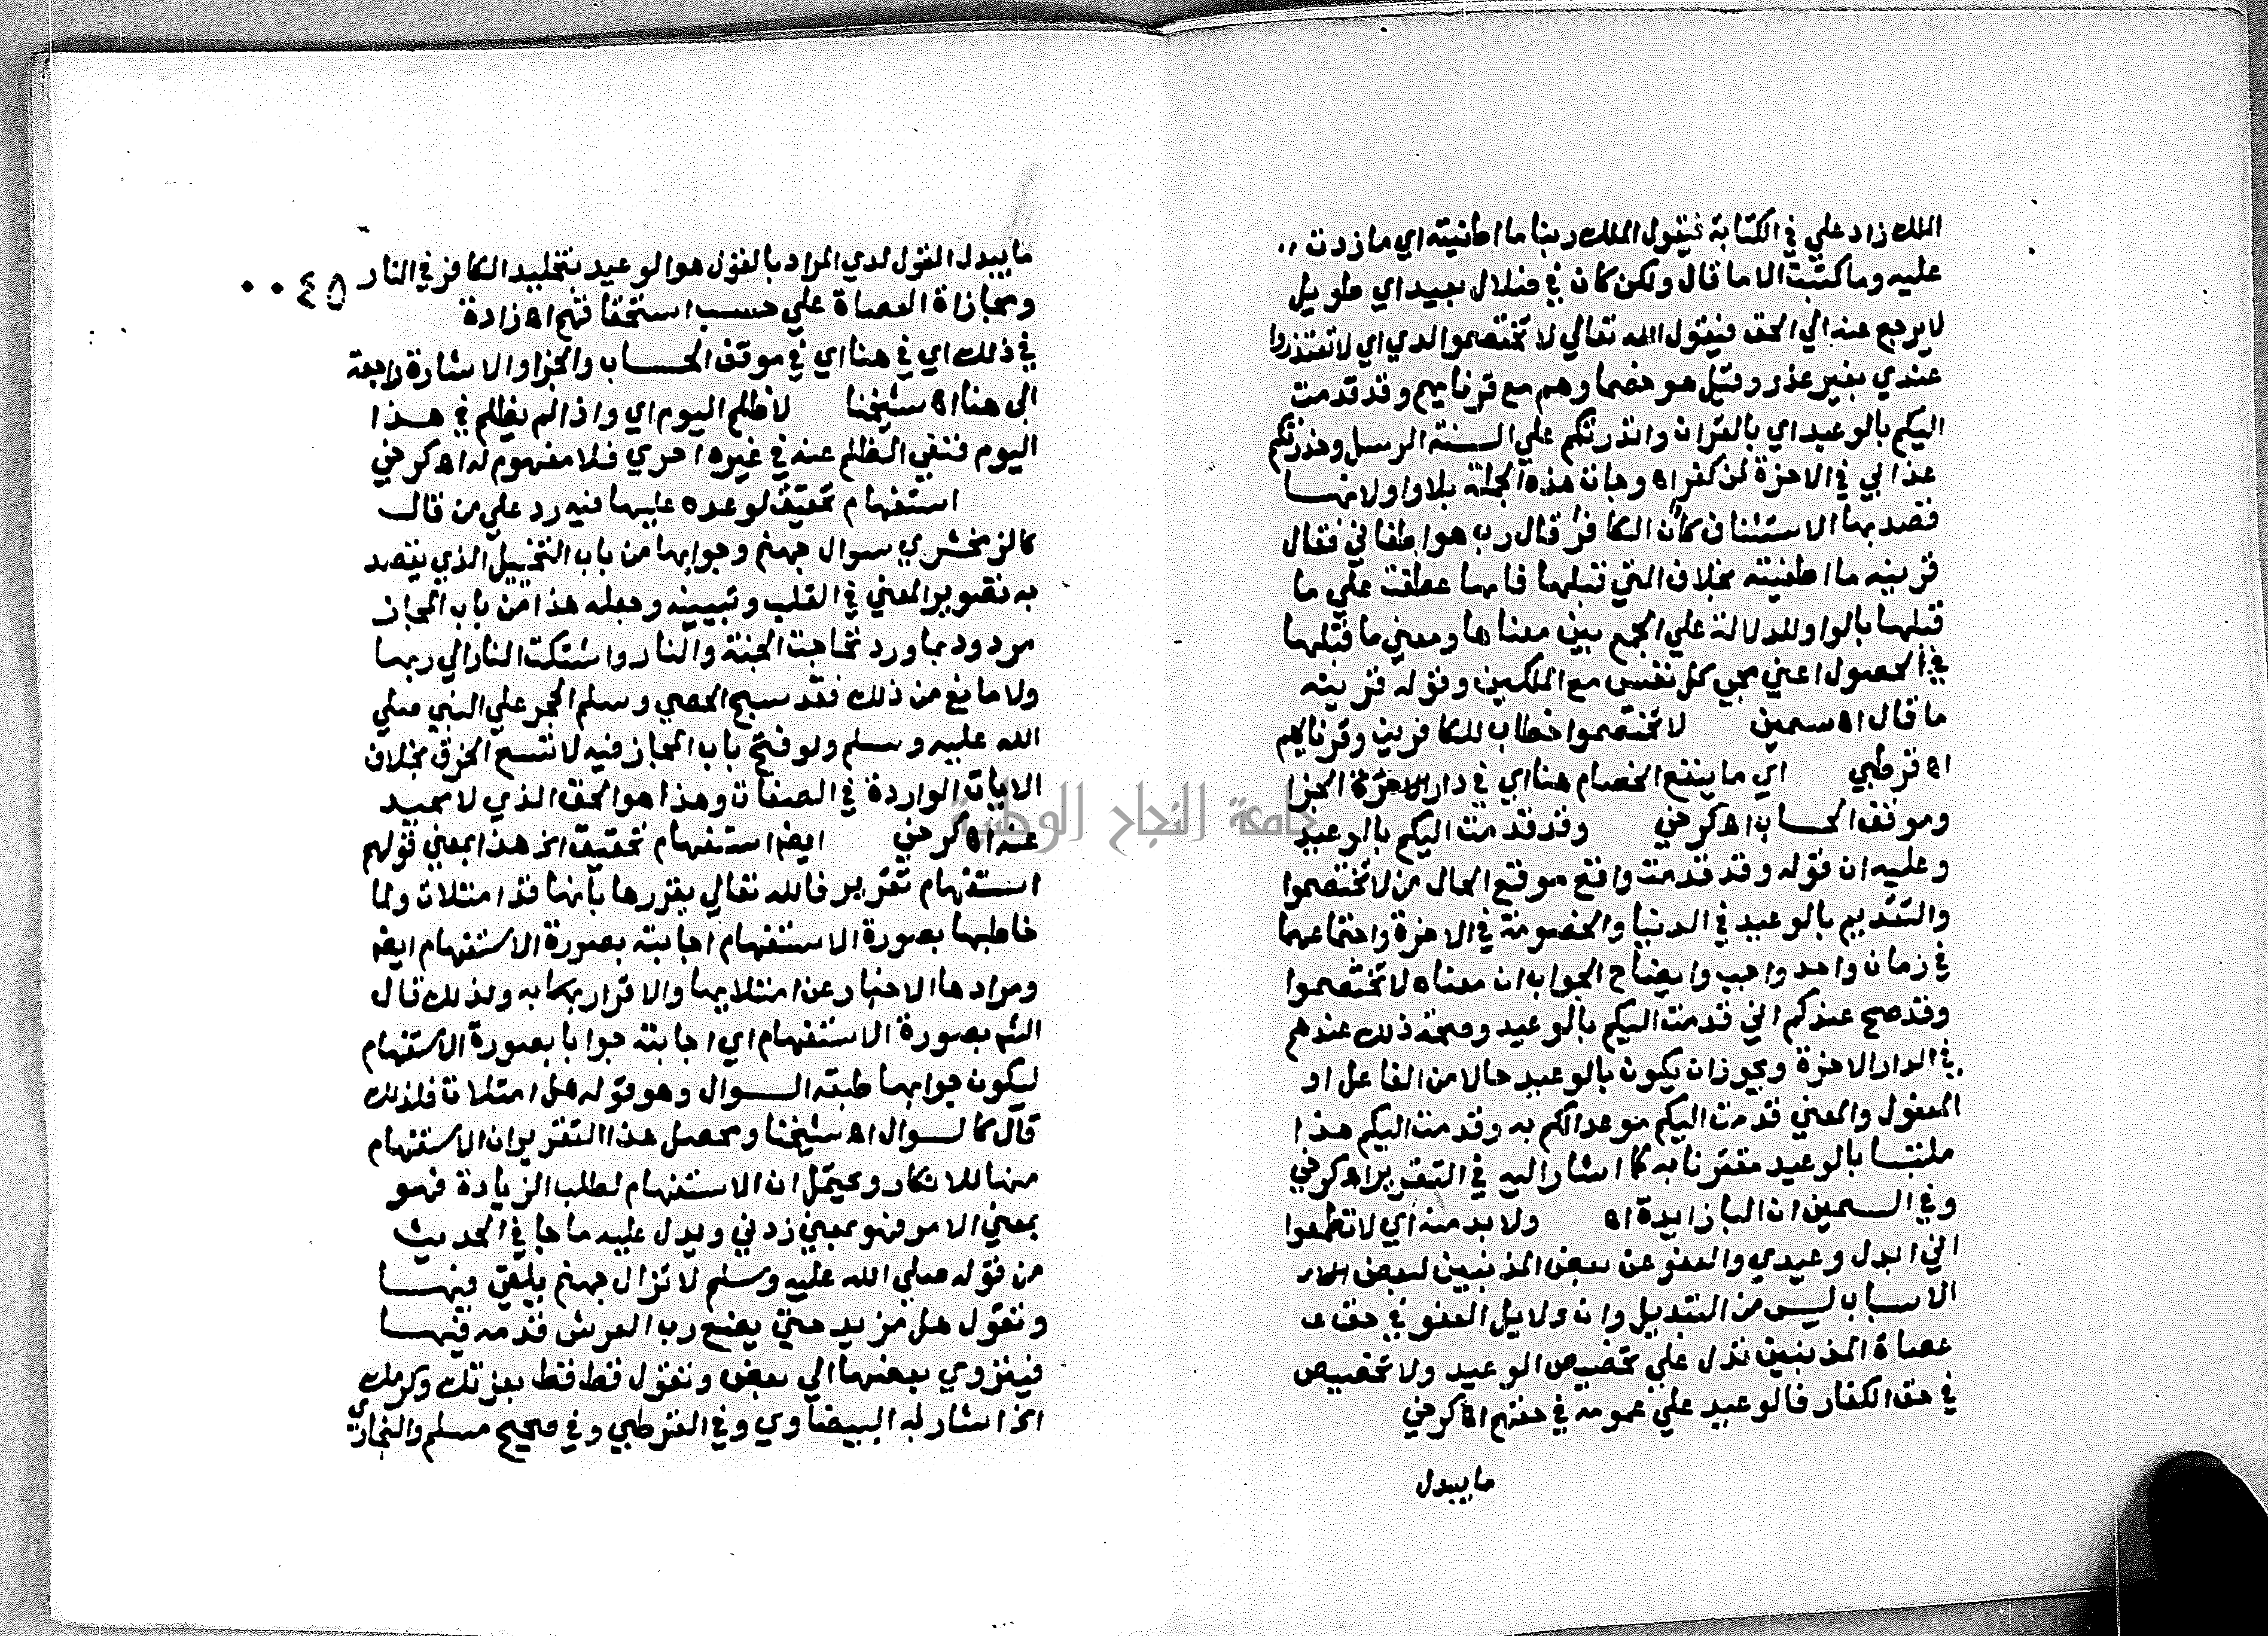 الملك زاد علي في الكتابة فيقول الملك ربنا ما اطغيته اي ما زدت
عليه وما كتبت الا ما قال ولكن كان في ضلال بعيد اي طويل
لا يرجع عنه الي الحق فيقول الله تعالي لا تختصموا لدي اي لا تعتذروا
عندي بغير عذر وقيل هو خصما وهم مع قرنايهم وقد قدمت
اليكم بالوعيد اي بالقران وانذرتكم علي السنة الرسل وحذرتكم
عذابي في الاخرة لمن كفر اه وجات هذه الجملة بلا واو لانها
قصد بها الاستئناف كأن الكافر قال رب هو اطغاني فقال
قرينه ما اطغيته بخلاف التي قبلها فانها عطفت علي ما
قبلها بالواو للدلالة علي الجمع بين معناها ومعني ما قبلها
في الحصول اعني مجي كل نفس مع الملكين وقوله قرينه
ما قال اه سمين لا تختصموا خطاب للكافرين وقرنايهم
اه قرطبي اي ما ينفع الخصام هنا اي في دار الاخرة الجزا
وموقف الحساب اه كرخي وقد قدمت اليكم بالوعيد
وعليه ان قوله وقد قدمت واقع موقع الحال من لا تختصموا
والتقديم بالوعيد في الدنيا والخصومة في الاخرة واجتماعهما
في زمان واحد واجب وايضاح الجواب ان معناه لا تختصموا
وقد صح عندكم اني قدمت اليكم بالوعيد وصحة ذلك عندهم
في الدار الاخرة ويجوز ان يكون بالوعيد حالا من الفاعل او
المفعول والمعني قدمت اليكم موعدا لكم به وقدمت اليكم هذا
ملتبسا بالوعيد مقترنا به كما اشار اليه في التقرير اه كرخي
وفي السمين ان البا زايدة اه ولا بد منه اي لا تطمعوا
اني ابدل وعيدي والعفو عن بعض المذنبين لبعض
الاسباب ليس من التبديل وان دلايل العفو في حق
عصاة المذنبين تدل علي تخصيص الوعيد ولا تخصيص
في حق الكفار فالوعيد علي عمومه في حقهم اه كرخي
ما يبدل
ما يبدل القول لدي المراد بالقول هو الوعيد بتخليد الكافر في النار
٠٠٤٥
ومجازاة العصاة علي حسب استحقاقهم اه زادة
في ذلك اي في هنا اي في موقف الحساب والجزا والاشارة راجعة
الى هنا اه شيخنا لا ظلم اليوم اي واذا لم يظلم في هذا
اليوم فنفي الظلم عنه في غيره احري فلا مفهوم له اه كرخي
استفهام تحقيق لوعده عليها فيه رد علي من قال
كالزمخشري سوال جهنم وجوابها من باب التخييل الذي يقصد
به تصوير المعني في القلب وتبيينه وجعله هذا من باب المجاز
مردود بما ورد تحاجت الجنة والنار واشتكت النار الي ربها
ولا مانع من ذلك فقد سبح الحصي وسلم الحجر علي النبي صلي
الله عليه وسلم ولو فتح باب المجاز فيه لاتسع الخرق بخلاف
الايات الواردة في الصفات وهذا هو الحق الذي لا محيد
عنه اه كرخي ايضا استفهام تحقيق الخ هذا بمعني قولهم
استفهام تقرير فالله تعالي يقررها بانها قد امتلات ولما
خاطبها بصورة الاستفهام اجابته بصورة الاستفهام ايضا
ومرادها الاخبار عن امتلايها والاقرار بها به ولذلك قال
الش بصورة الاستفهام اي اجابته جوابا بصورة الاستفهام
ليكون جوابها طبق السوال وهو قوله هل امتلات فلذلك
قال كالسوال اه شيخنا ومحصل هذا التقرير ان الاستفهام
منها للانكار ويحتمل ان الاستفهام لطلب الزيادة فهو
بمعني الامر فهو بمعني زدني ويدل عليه ما جا في الحديث
من قوله صلي الله عليه وسلم لا تزال جهنم يلقي فيها
وتقول هل من مزيد حتي يضع رب العرش قدمه فيها
فينزوي بعضها الي بعض وتقول قط قط بعزتك وكرمك
الخ اشار له البيضاوي وفي القرطبي وفي صحيح مسلم والبخاري
جامعة النجاح الوطنية